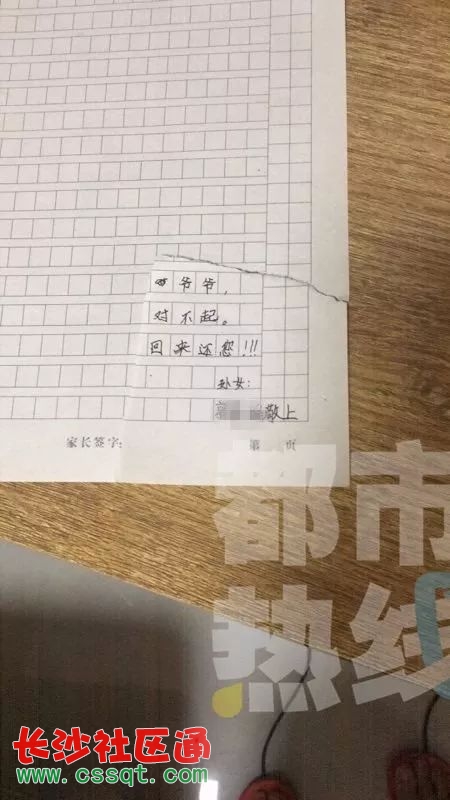 爷爷,
对不起。
回来还您!!!
孙女:
敬上
家长签字:
第 页
都市
热线
长沙社区通
www.cssqt.com